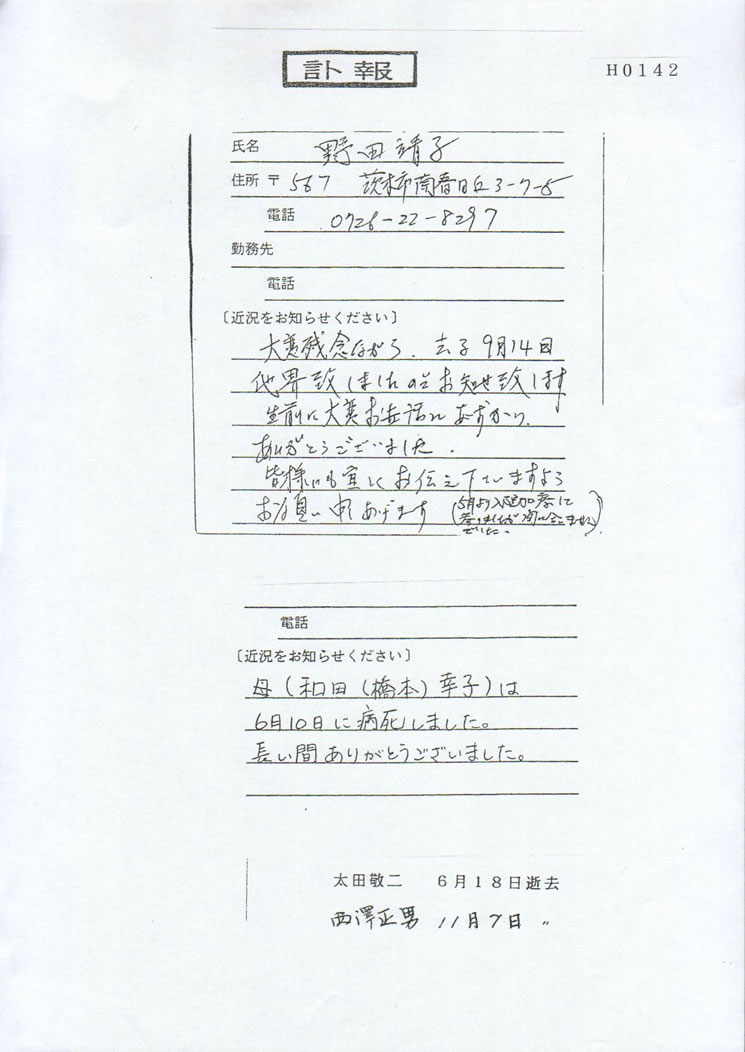 訃報
H0142
氏名 野田靖子
住所 〒567 茨木市南春日丘3-7-5
電話 0726-22-8297
勤務先
電話
〔近況をお知らせください〕
大変残念ながら、去る9月14日
他界致しましたのでお知せ致します
生前は大変お世話にあずかり、
ありがとうございました。
皆様にも宜しくお伝え下さいますよう
お願い申しあげます
(5月より入院加療して
居りましたが 間に合いません
でした。)
電話
〔近況をお知らせください〕
母(和田(橋本)幸子)は
6月10日に病死しました。
長い間ありがとうございました。
太田敬二 6月18日逝去
西澤正男 11月7日 〃